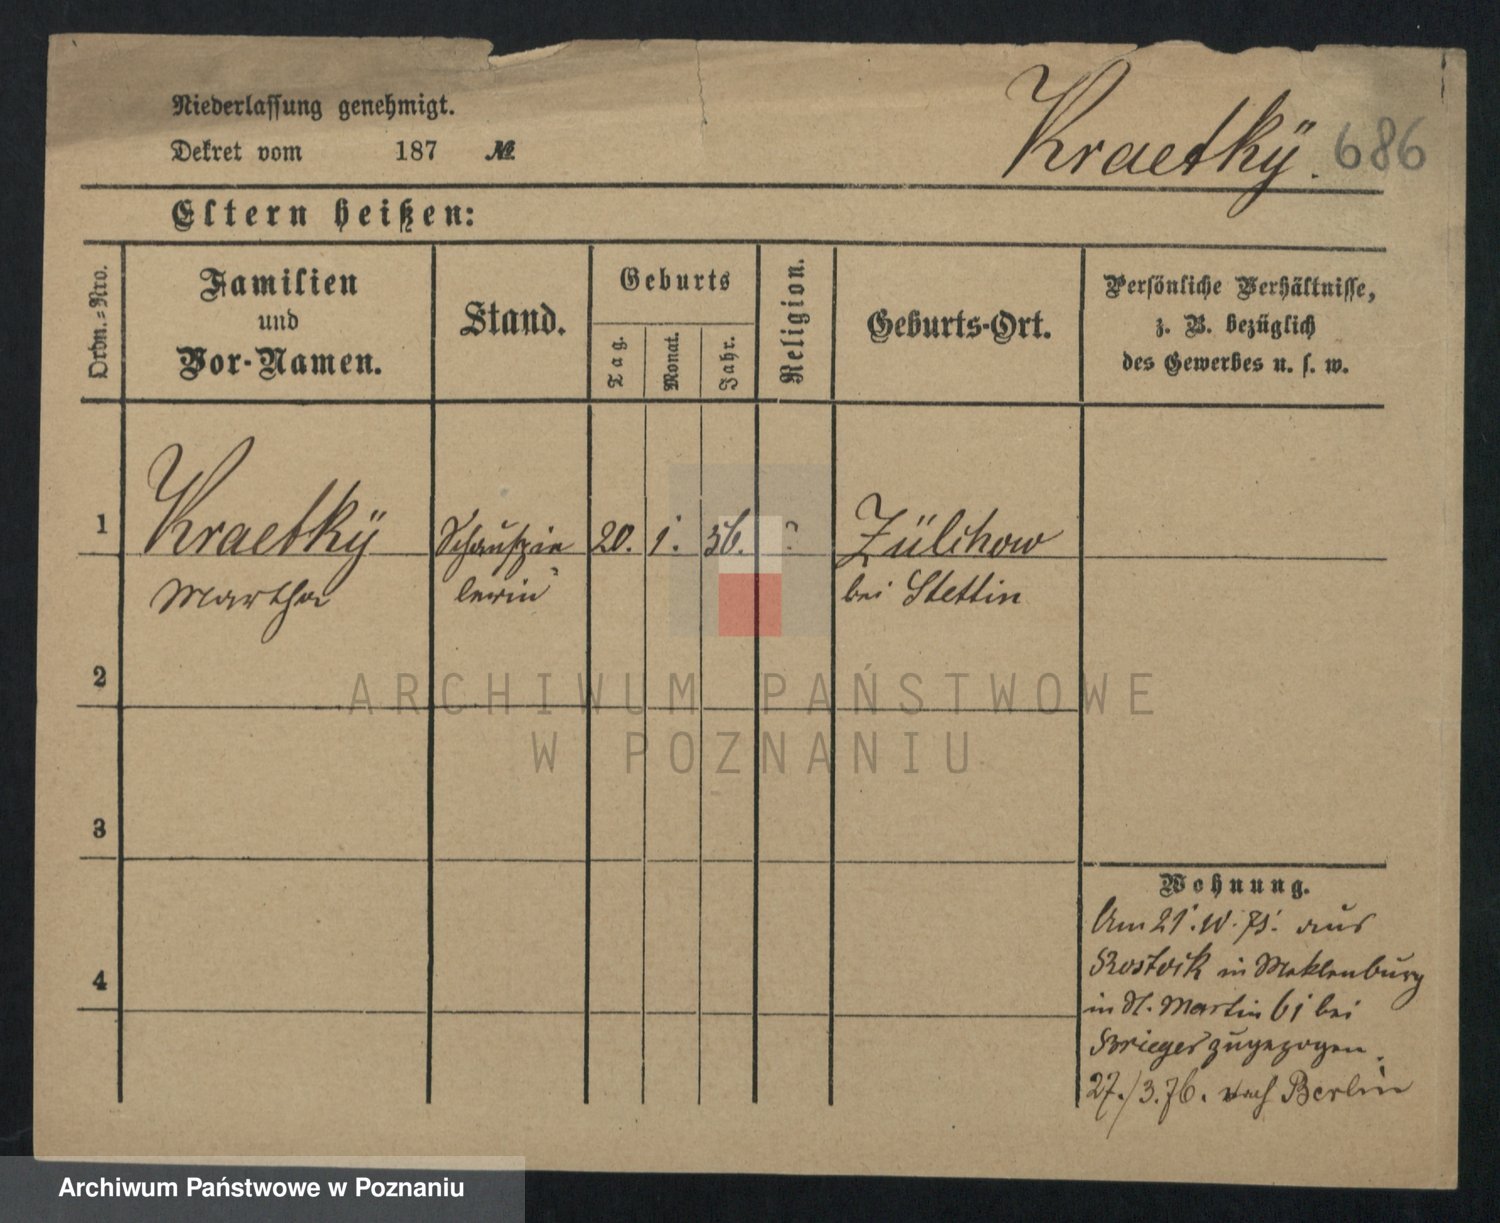 Niederlassung genehmigt.
Dekret vom 187 №
Kraetkÿ. 686
Eltern heißen:
Ordn.-Nro.
Familien
und
Vor-Namen.
Stand.
Geburts
Tag.
Monat.
Jahr.
Religion.
Geburts-Ort.
Persönliche Verhältnisse,
z. B. bezüglich
des Gewerbes u. s. w.
1 Kraetkÿ Schauspie 20. 1. 56. ? Züllchow
Martha lerin bei Stettin
2
3
4
ARCHIWUM PAŃSTWOWE
W POZNANIU
Wohnung.
Am 21. 10. 75. aus
Rostock in Meklenburg
in St. Martin 61 bei
Krieger zugezogen.
27./3.76. nach Berlin
Archiwum Państwowe w Poznaniu